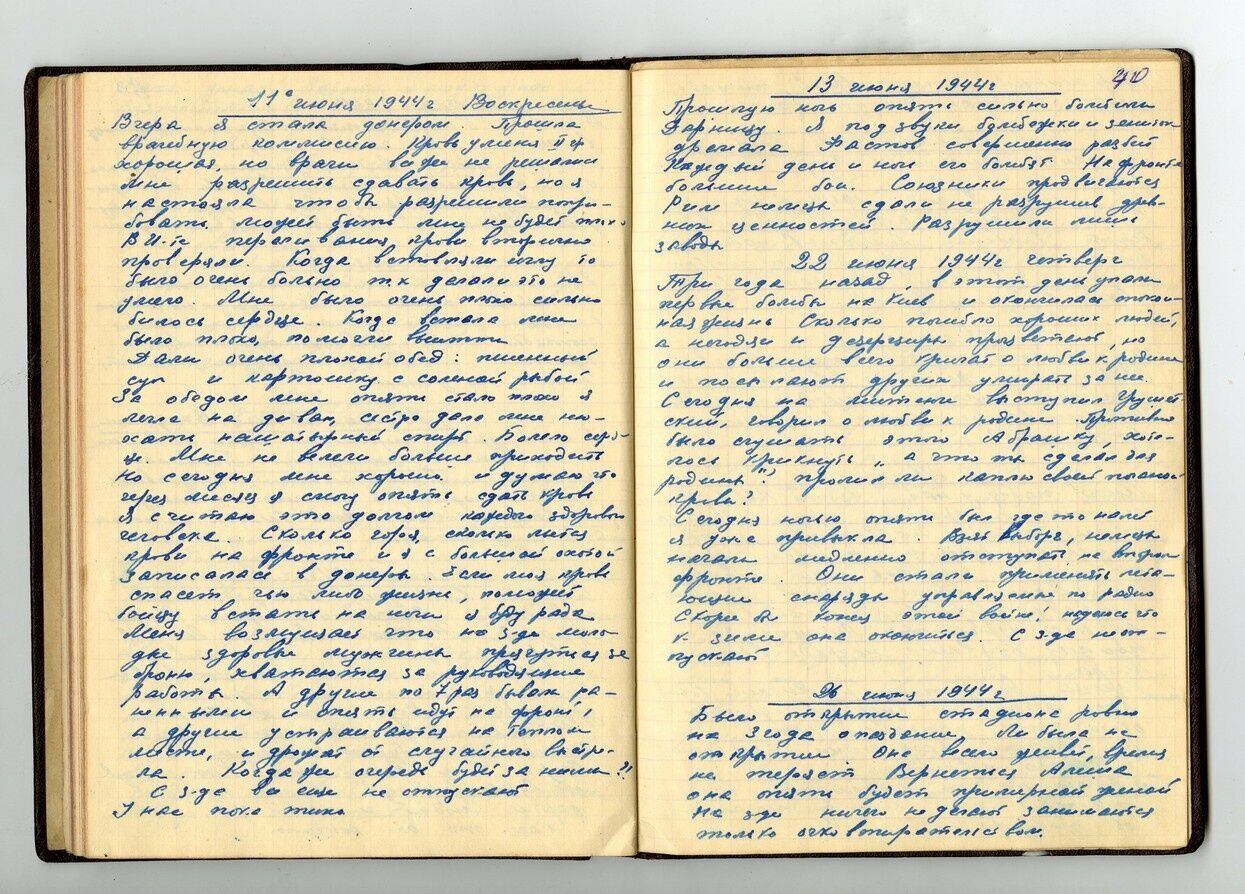 11го июня 1944г Воскресенье
Вчера я стала донером. Прошла
врачебную коммисию. Кровь у меня II гр
хорошая, но врачи все же не решали
мне разрешить сдавать кровь, но я
настояла чтобы разрешили попро-
бовать может быть мне не будет плохо
В И-те переливания крови вторично
проверяли. Когда вставляли иглу то
было очень больно т.к делали это не
умело. Мне было очень плохо сильно
билось сердце. Когда встала мне
было плохо, помогли выйти
Дали очень плохой обед: пшенный
суп и картошку с соленой рыбой
За обедом мне опять стало плохо я
легла на диван, сестра дала мне ню-
хать нашатырный спирт. Болело серд-
це. Мне не велели больше приходить
Но сегодня мне хорошо и думаю что
через месяц я смогу опять сдать кровь
Я считаю это долгом каждого здорового
человека. Сколько горя, сколько льется
крови на фронте и я с большой охотой
записалась в донеры. Если моя кровь
спасет чью либо жизнь, поможет
бойцу встать на ноги я буду рада
Меня возмущает что на з-де моло-
дые здоровые мужчины прячутся за
броню, хватаются за руководящие
работы. А другие по 7 раз бывали ра-
ненными и опять идут на фронт,
а другие устраиваются на теплом
месте, и дрожат от случайного выстре-
ла. Когда же очередь будет за ними?!
С з-да все еще не отпускают
У нас пока тихо
40
13 июня 1944г
Прошлую ночь опять сильно бомбили
Дарницу. Я под звуки бомбежки и зениток
дремала Фастов совершенно разбит
Каждый день и ночь его бомбят. На фронте
большие бои. Союзники продвигаются
Рим немцы сдали не разрушив древ-
них ценностей. Разрушили лишь
заводы
22 июня 1944г четверг
Три года назад, в этот день упали
первые бомбы на Киев и окончилась спокой-
ная жизнь Сколько погибло хороших людей,
а негодяи и дезертиры процветают, но
они больше всего кричат о любви к родине
и посылают других умирать за нее.
Сегодня на митинге выступил Грушев-
ский, говорил о любви к родине. Противно
было слушать этого Абрашку, хоте-
лось крикнуть „а что ты сделал для
родины"? пролил ли каплю своей поганой
крови?
Сегодня ночью опять был где то налет
я уже привыкла. Взят Выборг, немцы
начали медленно отступать на втором
фронте. Они стали применять лета-
ющие снаряды управляемые по радио
Скорее бы конец этой войне! надеюсь что
к зиме она окончится. С з-да не от-
пускают
26 июня 1944г
Было открытие стадиона ровно
на 3 года опоздание. Ли была на
открытии Она весело живет, время
не теряет Вернется Алеша
она опять будет примерной женой
На з-де ничего не делают занимаются
только очковтирательством.